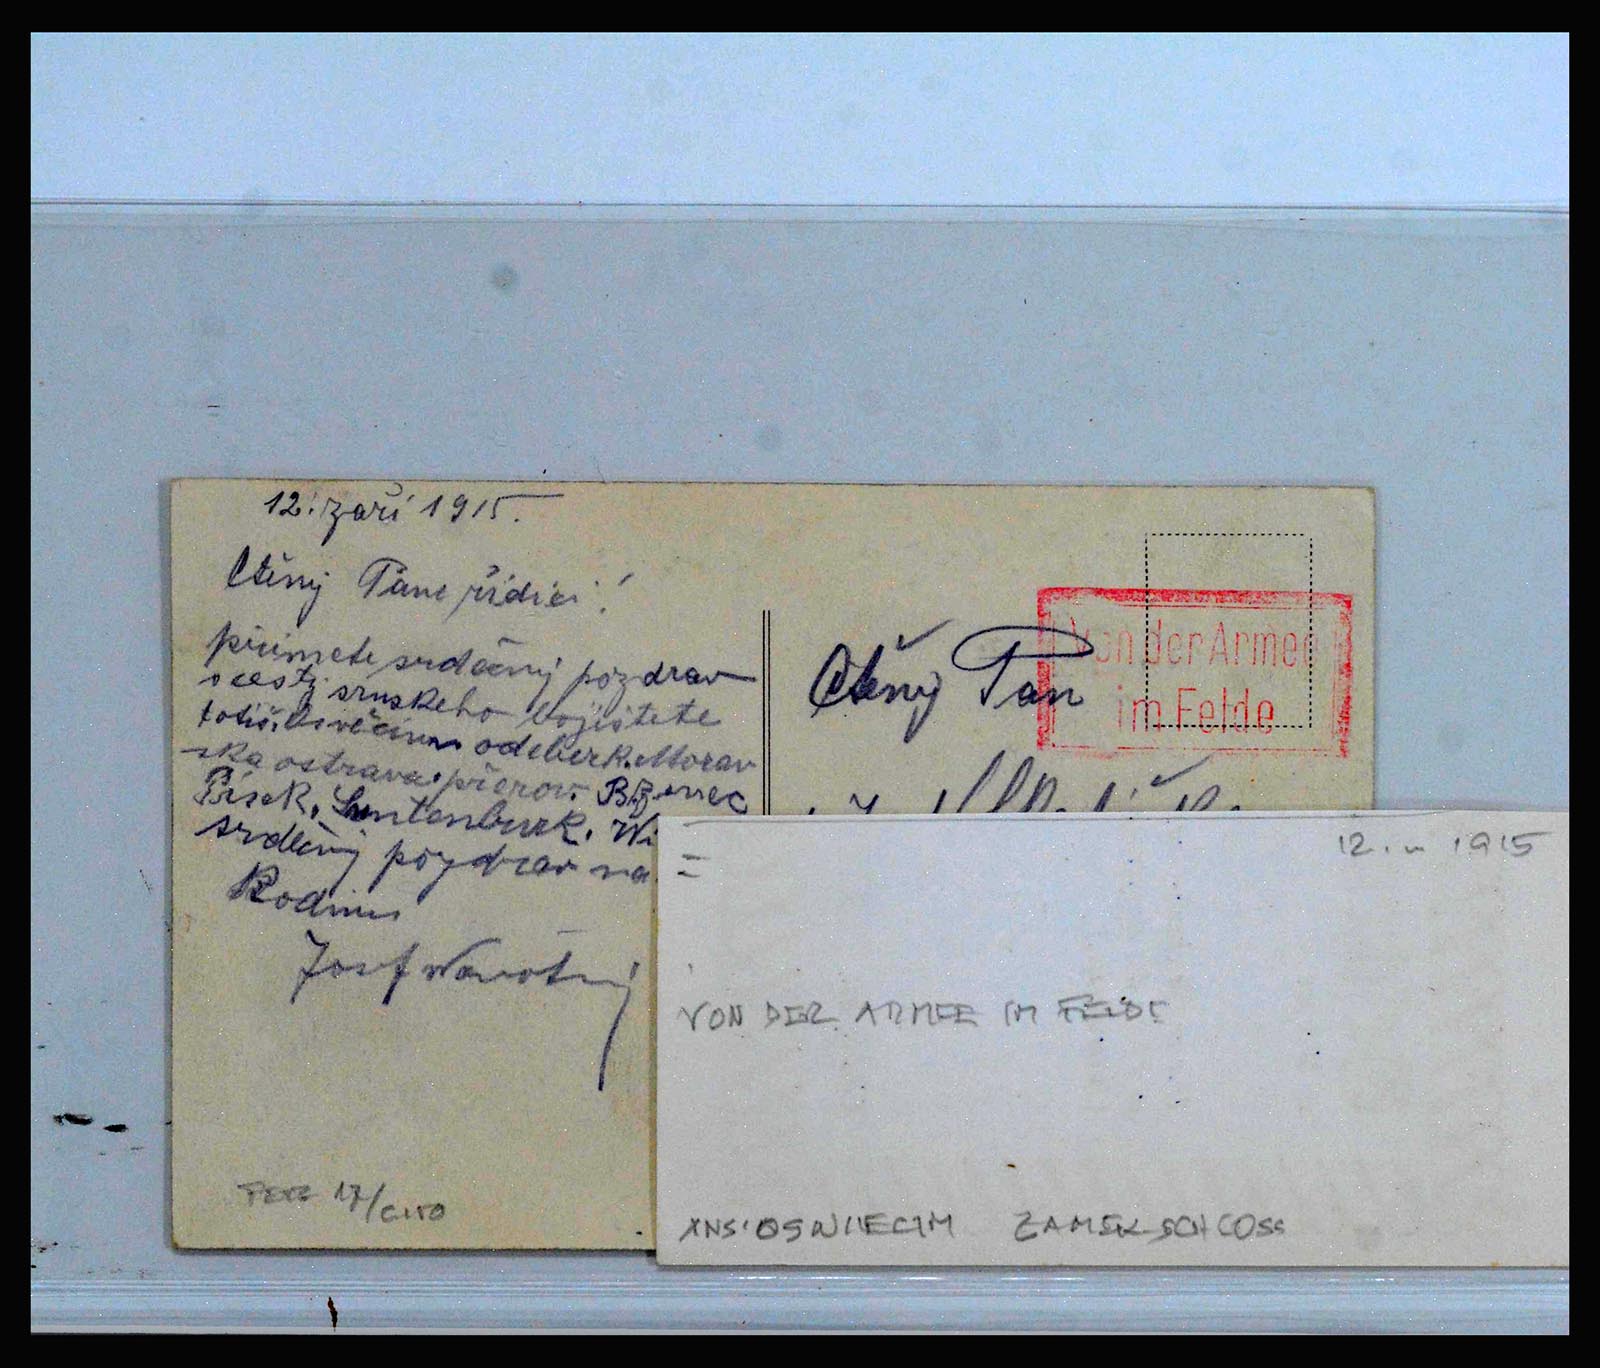 12. září 1915.
Ctěný Pane řídící!
přímete srdečný pozdrav
s cesty sruskeho bojištete
totiž. Osvěcim oderberk. Morav
ska ostrava. přerov. Bzenec
Písek. Luntenburk. Wi
srdečný pozdrav na
Rodinu
Josef Novotný
Ctěný Pan
Von der Armee
im Felde
12. 1915
VON DER ARMEE IM FELDE
ANS: OSWIECIM ZAMEK-SCHLOSS
17/